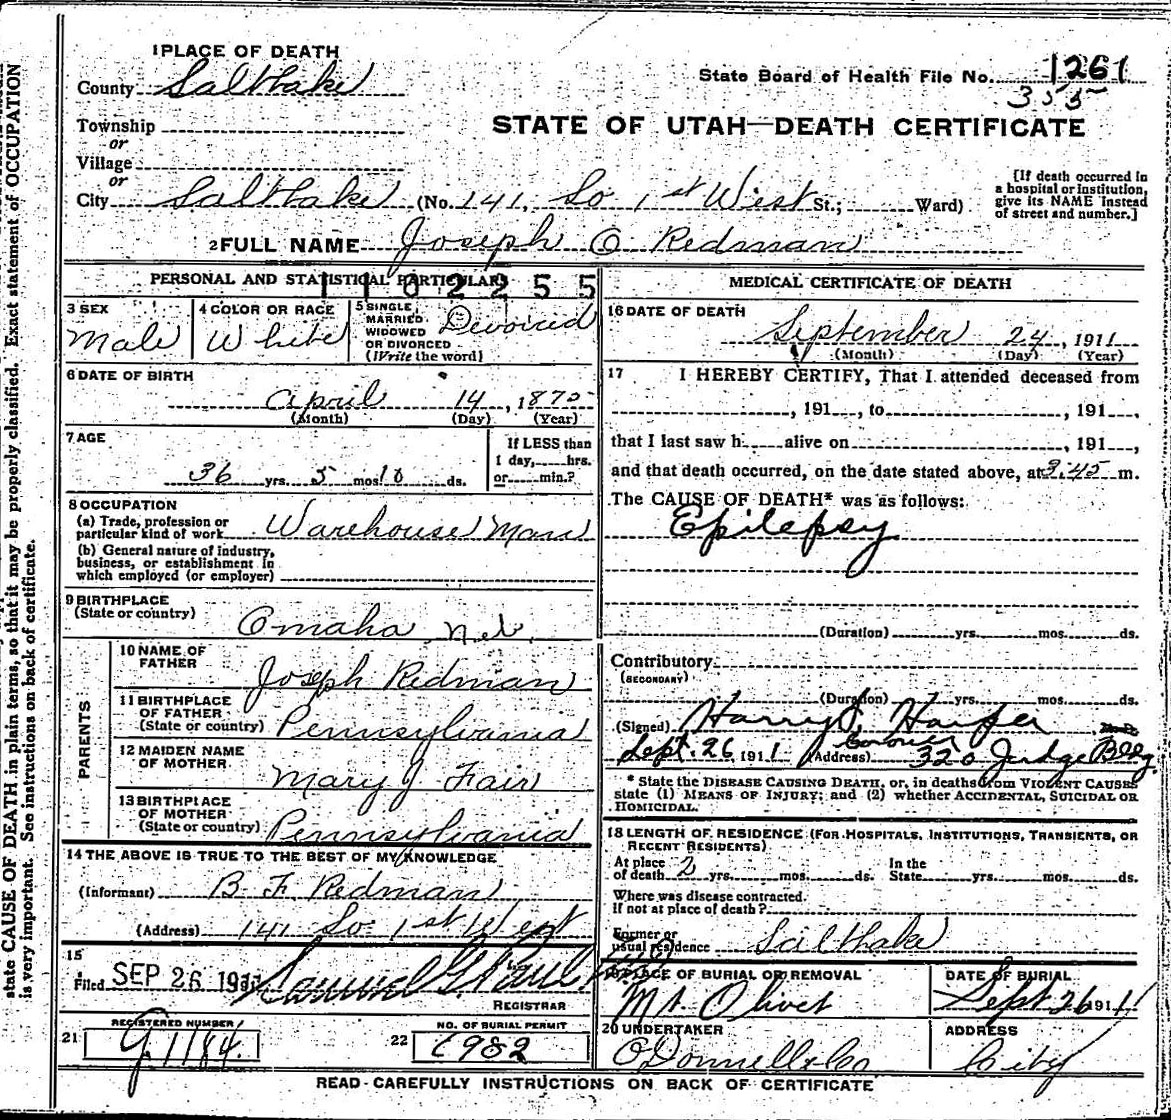 state CAUSE OF DEATH in plain terms, so that it may be properly classified. Exact statement of OCCUPATION
is very important. See instructions on back of certificate.
1 PLACE OF DEATH
County Salt Lake
State Board of Health File No. 1261
355
STATE OF UTAH—DEATH CERTIFICATE
Township
or
Village
or
City Salt Lake (No. 141, So 1st West St.; Ward)
[If death occurred in
a hospital or institution,
give its NAME instead
of street and number.]
2 FULL NAME Joseph O Redman
PERSONAL AND STATISTICAL PARTICULARS
1102255
3 SEX
Male
4 COLOR OR RACE
White
5 SINGLE
MARRIED
WIDOWED
OR DIVORCED
(Write the word)
Devorced
6 DATE OF BIRTH
April 14, 1875
(Month) (Day) (Year)
7 AGE
36 yrs. 5 mos 10 ds.
If LESS than
1 day, hrs.
or min.?
8 OCCUPATION
(a) Trade, profession or
particular kind of work Warehouse Man
(b) General nature of industry,
business, or establishment in
which employed (or employer)
9 BIRTHPLACE
(State or country)
Omaha Neb.
PARENTS
10 NAME OF
FATHER
Joseph Redman
11 BIRTHPLACE
OF FATHER
(State or country) Pennsylvania
12 MAIDEN NAME
OF MOTHER
Mary J Fair
13 BIRTHPLACE
OF MOTHER
(State or country) Pennsylvania
14 THE ABOVE IS TRUE TO THE BEST OF MY KNOWLEDGE
(Informant) B F Redman
(Address) 141 So 1st West
15
Filed SEP 26 1911 Samuel G. Paul
REGISTRAR
21 REGISTERED NUMBER
G 1184
22 NO. OF BURIAL PERMIT
C982
MEDICAL CERTIFICATE OF DEATH
16 DATE OF DEATH
September 24, 1911
(Month) (Day) (Year)
17 I HEREBY CERTIFY, That I attended deceased from
, 191 , to , 191 ,
that I last saw h alive on , 191 ,
and that death occurred, on the date stated above, at 3.45 m.
The CAUSE OF DEATH* was as follows:
Epilepsy
(Duration) yrs. mos. ds.
Contributory
(SECONDARY)
(Duration) yrs. mos. ds.
(Signed) Harry S. Harper
Coroner
Sept. 26 1911 (Address) 320 Judge Bldg
* State the DISEASE CAUSING DEATH, or, in deaths from VIOLENT CAUSES
state (1) MEANS OF INJURY; and (2) whether ACCIDENTAL, SUICIDAL OR
HOMICIDAL.
18 LENGTH OF RESIDENCE (FOR HOSPITALS, INSTITUTIONS, TRANSIENTS, OR
RECENT RESIDENTS)
At place
of death 2 yrs. mos. ds.
In the
State yrs. mos. ds.
Where was disease contracted
if not at place of death?
Former or
usual residence Salt Lake
19 PLACE OF BURIAL OR REMOVAL
Mt. Olivet
DATE OF BURIAL
Sept 26 1911
20 UNDERTAKER
O'Donnell & Co
ADDRESS
City
READ CAREFULLY INSTRUCTIONS ON BACK OF CERTIFICATE